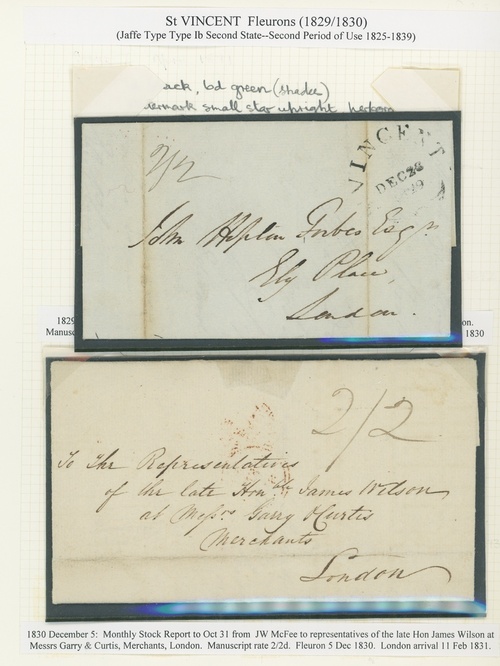 St VINCENT Fleurons (1829/1830)
(Jaffe Type Type Ib Second State--Second Period of Use 1825-1839)
ack, bd green (shades)
small star upright
VINCENT
DEC 28
2/2
John Hopton Forbes Esqr
Ely Place,
London.
1829
on.
Manusc
1830
2/2
To The Representatives
of the late Honble James Wilson
at Messrs Garry & Curtis
Merchants
London
1830 December 5: Monthly Stock Report to Oct 31 from JW McFee to representatives of the late Hon James Wilson at
Messrs Garry & Curtis, Merchants, London. Manuscript rate 2/2d. Fleuron 5 Dec 1830. London arrival 11 Feb 1831.